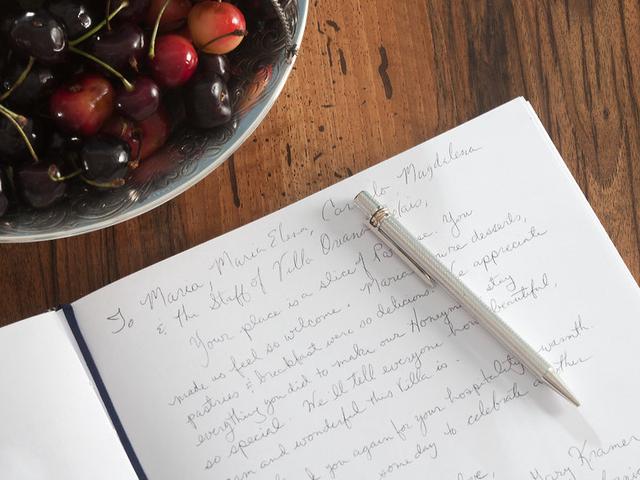 To Maria, Maria Elena, Magdilena
& the Staff of Villa
Your place is a slice of You
made us feel so welcome. Maria desserts,
pastries & breakfast were so delicious. We appreciate
everything you did to make our Honeymoon stay
so special. We'll tell everyone how beautiful,
and wonderful this Villa is.
you again for your hospitality warmth.
some day to celebrate
Mary Kramer